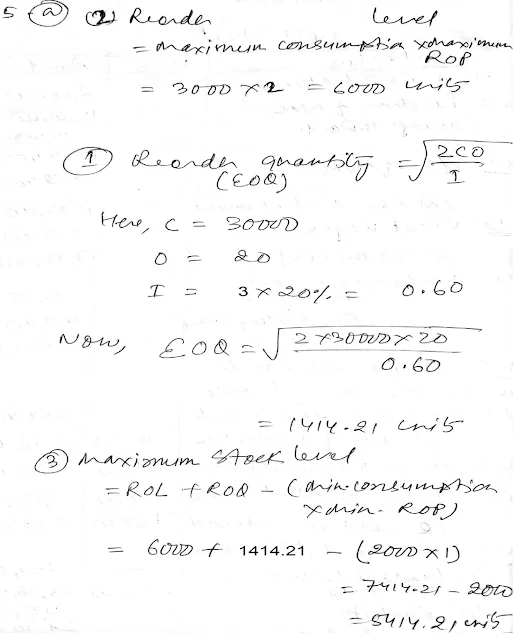 5 (a) (2) Reorder level
= maximum consumption x maximum
ROP
= 3000 x 2 = 6000 units
(1) Reorder quantity = √2CO/I
(EOQ)
Here, C = 30000
O = 20
I = 3 x 20% = 0.60
Now, EOQ = √2 x 30000 x 20/0.60
= 1414.21 units
(3) Maximum stock level
= ROL + ROQ - (min. consumption
x min. ROP)
= 6000 + 1414.21 - (2000 x 1)
= 7414.21 - 2000
= 5414.21 units